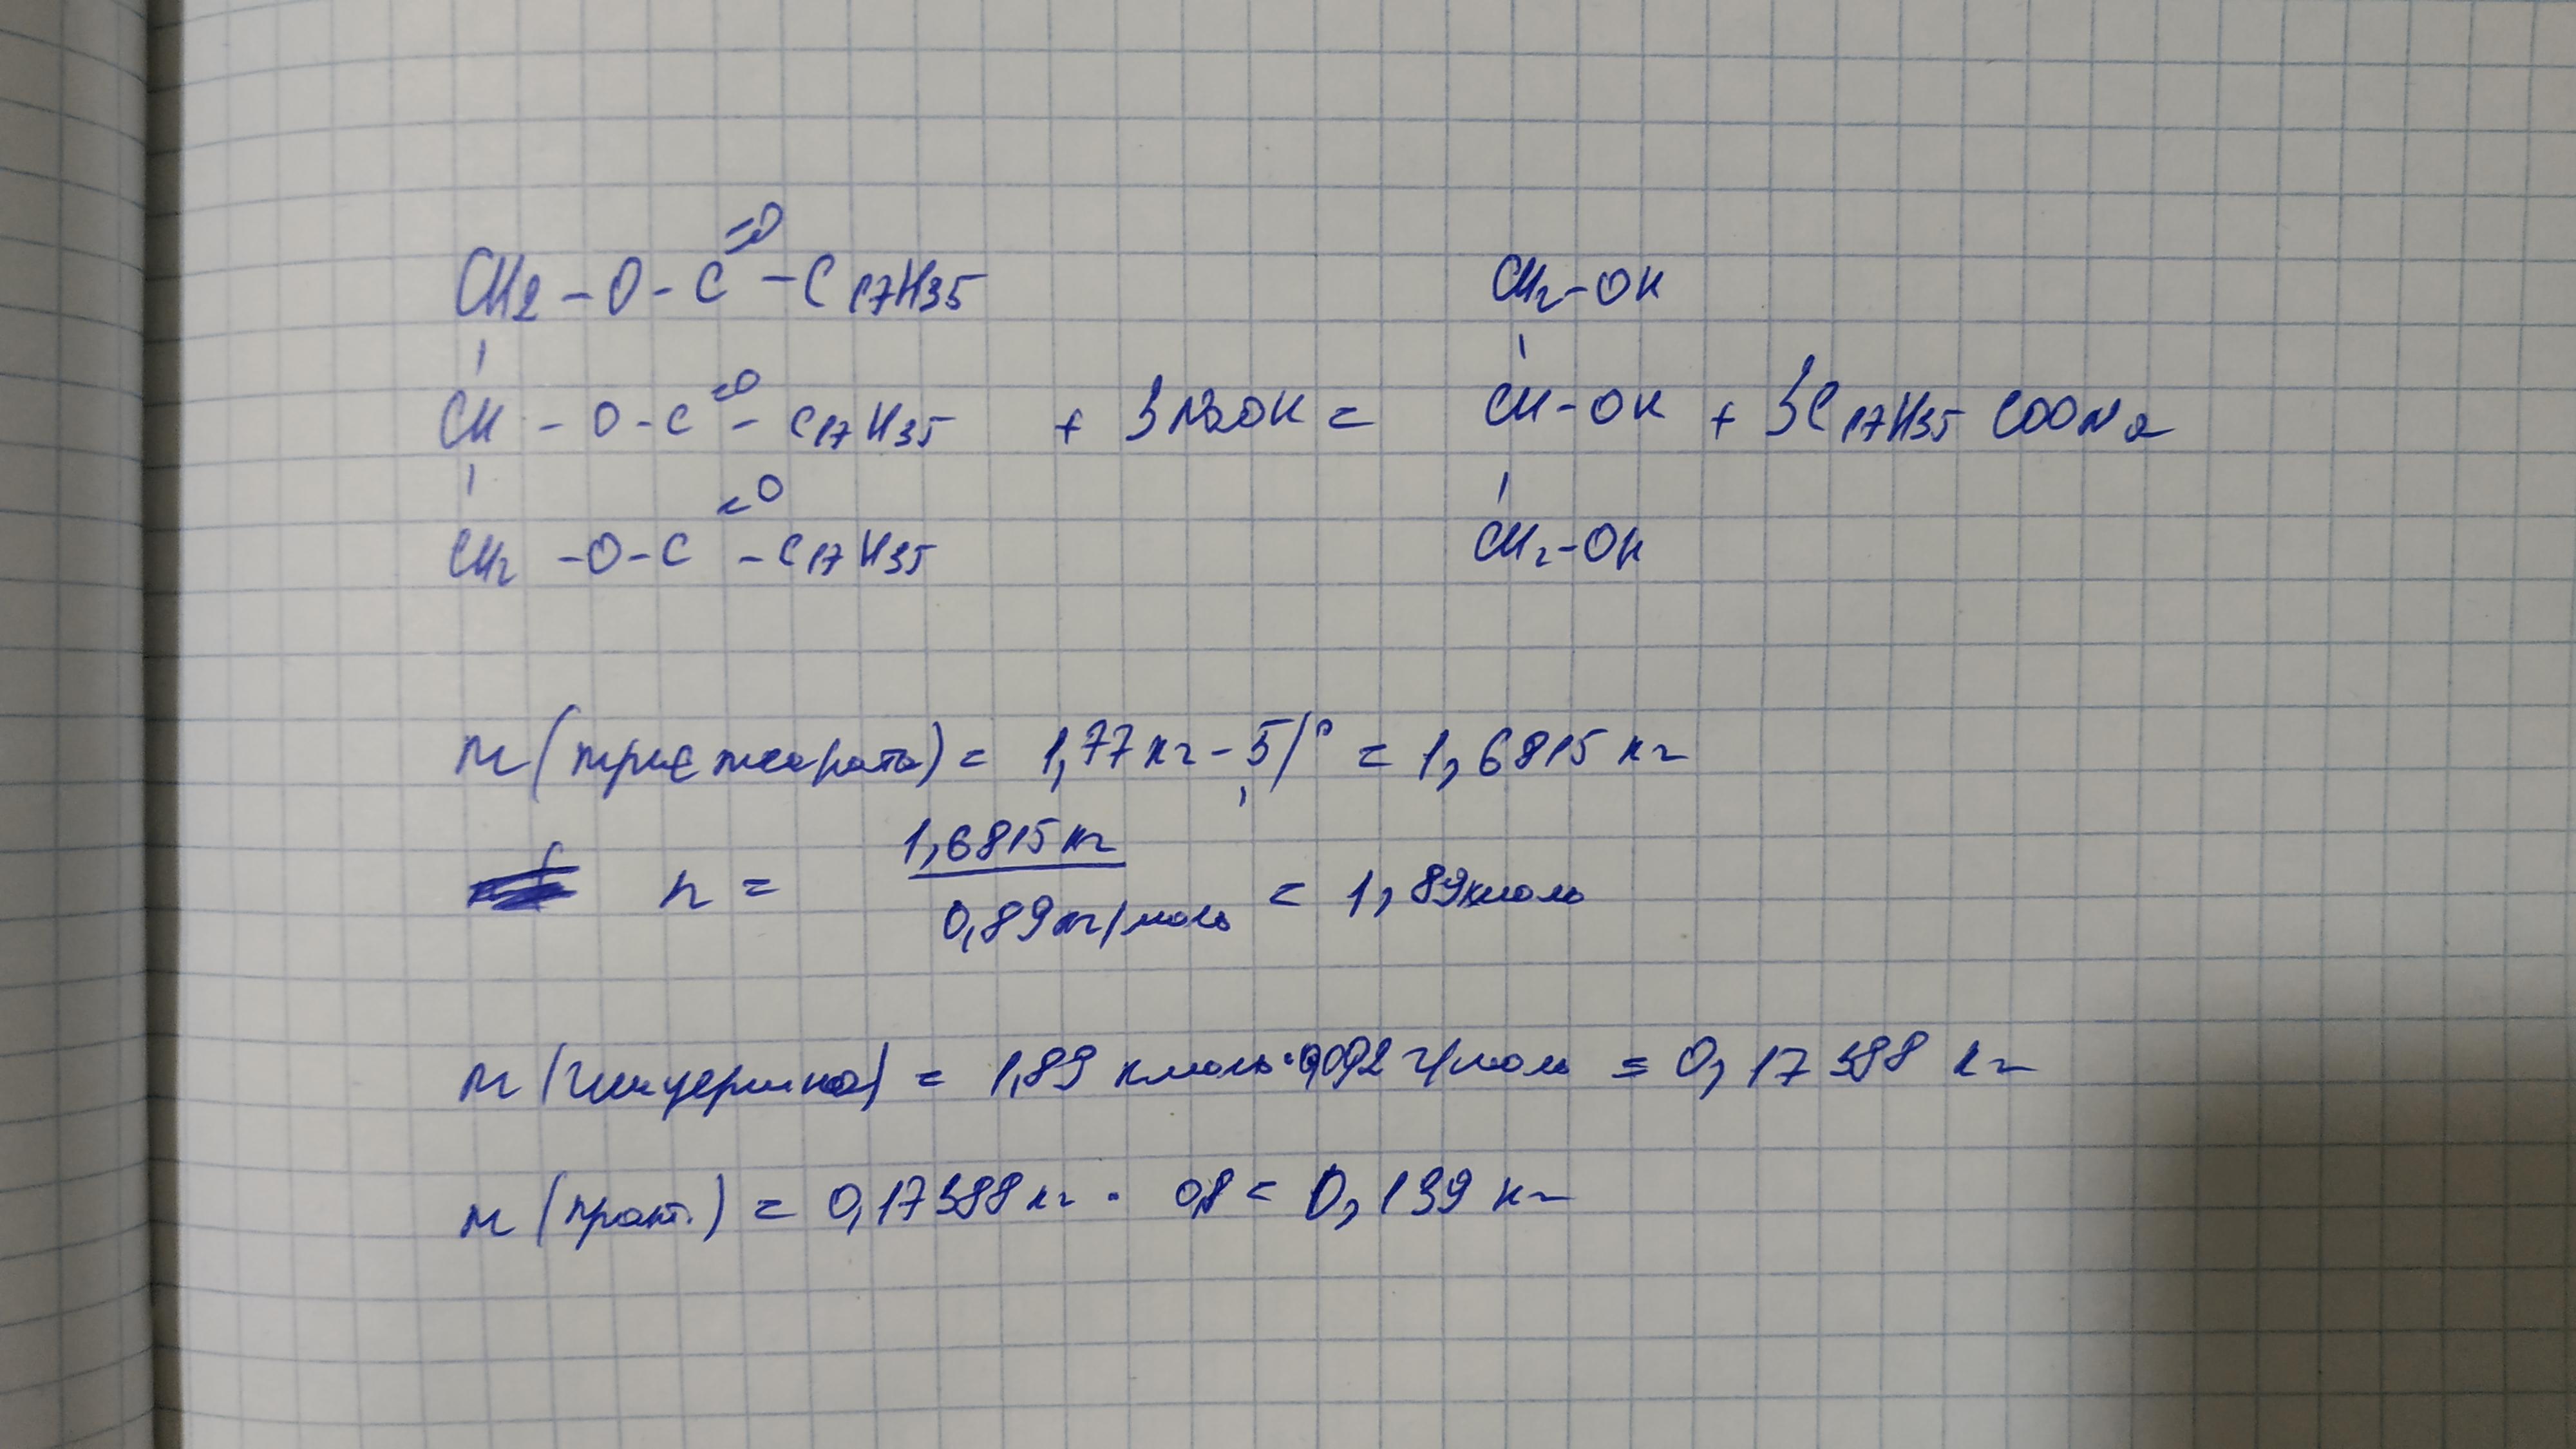 CH2 - O - C =O - C17H35
CH - O - C =O - C17H35 + 3NaOH =
CH2 - O - C =O - C17H35
CH2-OH
CH-OH + 3C17H35COONa
CH2-OH
m (тристеарата) = 1,77 кг - 5% = 1,6815 кг
n = 1,6815 кг / 0,89 кг/моль = 1,89 кмоль
m (глицерина) = 1,89 кмоль · 0,092 г/моль = 0,17388 кг
m (практ.) = 0,17388 кг · 0,8 = 0,139 кг